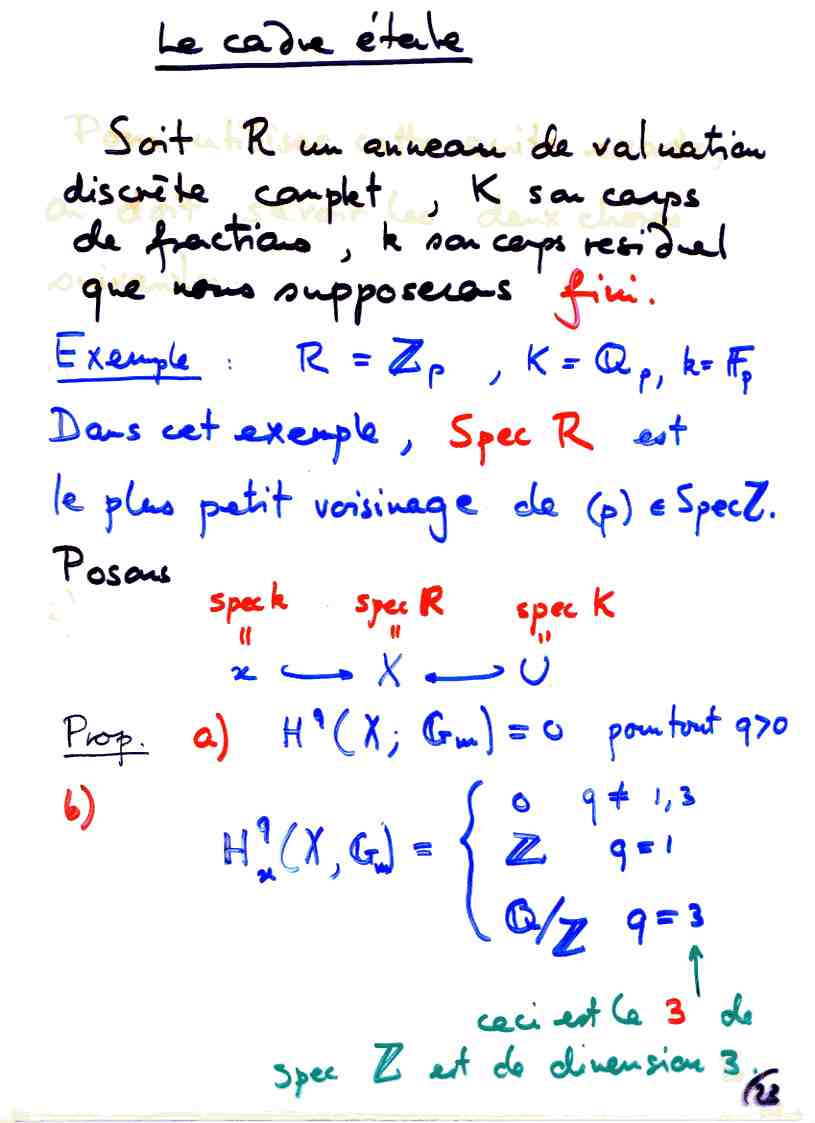 Le cadre étale
Soit R un anneau de valuation
discrète complet, K son corps
de fractions, k son corps residuel
que nous supposerons fini.
Exemple : R = ℤp , K = ℚp, k = 𝔽p
Dans cet exemple, Spec R est
le plus petit voisinage de (p) ∈ Spec ℤ.
Posons
spec k spec R spec K
" " "
x ⟶ X ⟵ U
Prop. a) H^q(X; 𝔾m) = 0 pour tout q>0
b)
0 q ≠ 1, 3
H^q_x(X, 𝔾m) = { ℤ q = 1
ℚ/ℤ q = 3
↑
ceci est le 3 de
spec ℤ est de dimension 3.
23